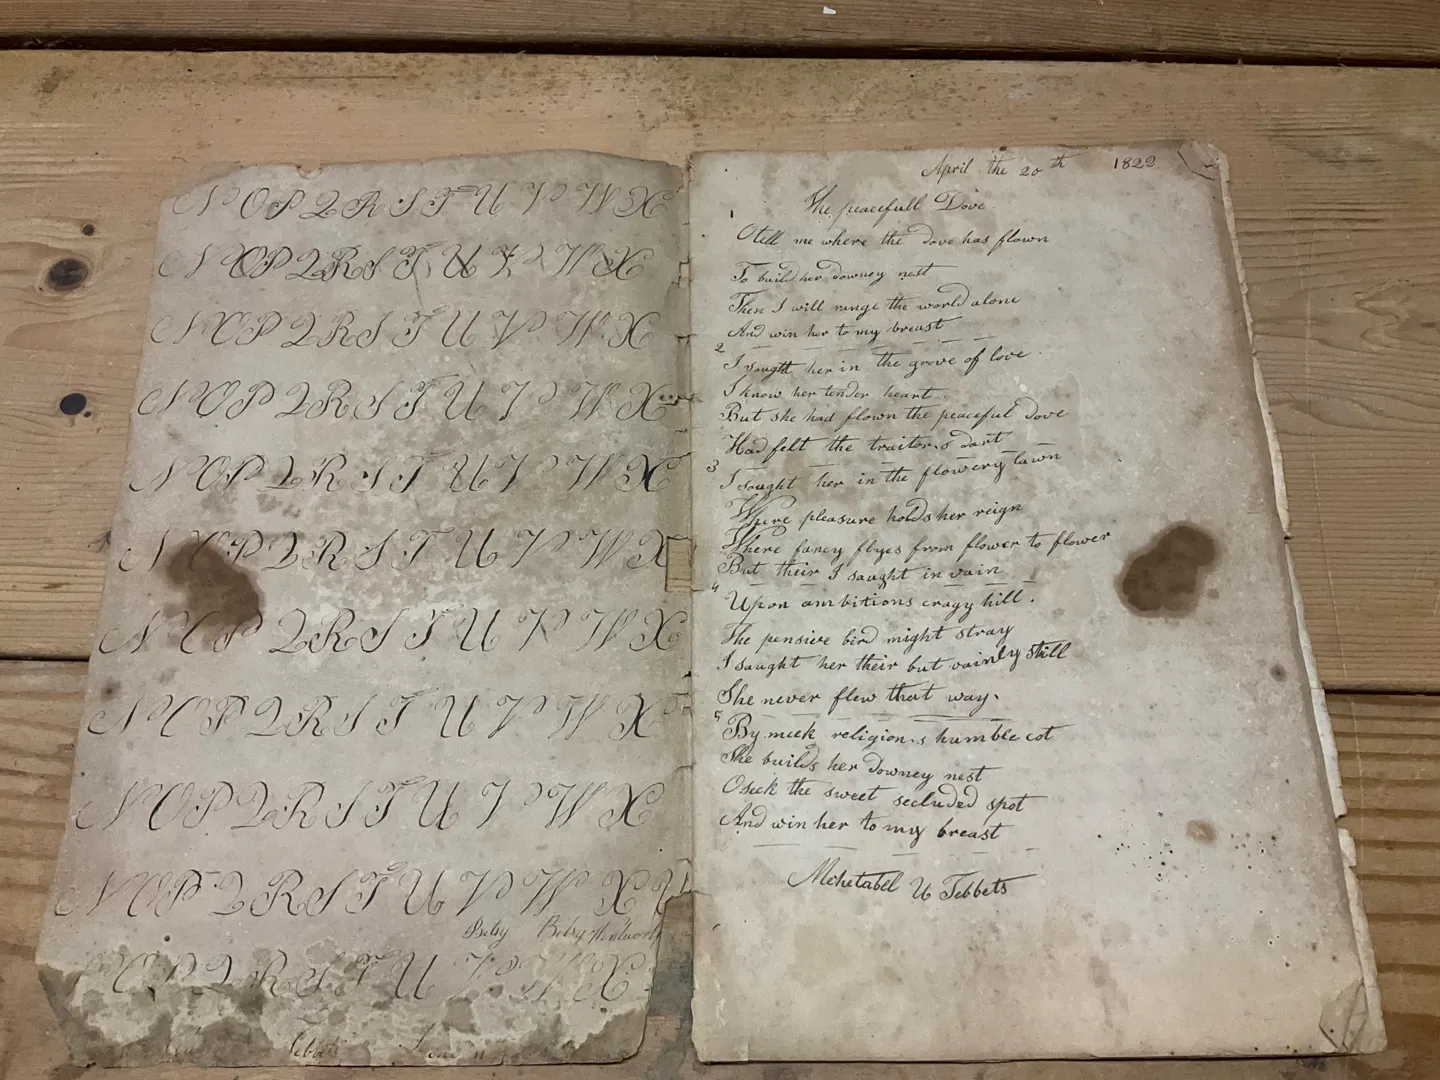 N O P Q R S T U V W X
N O P Q R S T U V W X
N O P Q R S T U V W X
N O P Q R S T U V W X
N O P Q R S T U V W X
N O P Q R S T U V W X
N O P Q R S T U V W X
N O P Q R S T U V W X
N O P Q R S T U V W X
N O P Q R S T U V W X
Betsy Betsy Wentworth
O P Q R S T U V W X
Tebbets
April the 20th 1822
The peacefull Dove
O tell me where the dove has flown
To build her downey nest
Then I will range the world alone
And win her to my breast
2
I saught her in the grove of love
I know her tender heart
But she had flown the peaceful dove
Had felt the traitor,s dart
3
I saught her in the flowery lawn
Where pleasure holds her reign
Where fancy flyes from flower to flower
But their I saught in vain
4
Upon ambitions cragy hill.
The pensive bird might stray
I saught her their but vainly still
She never flew that way.
5
By meek religion,s humble cot
She builds her downey nest
O seek the sweet secluded spot
And win her to my breast
Mehetabel U Tebbets